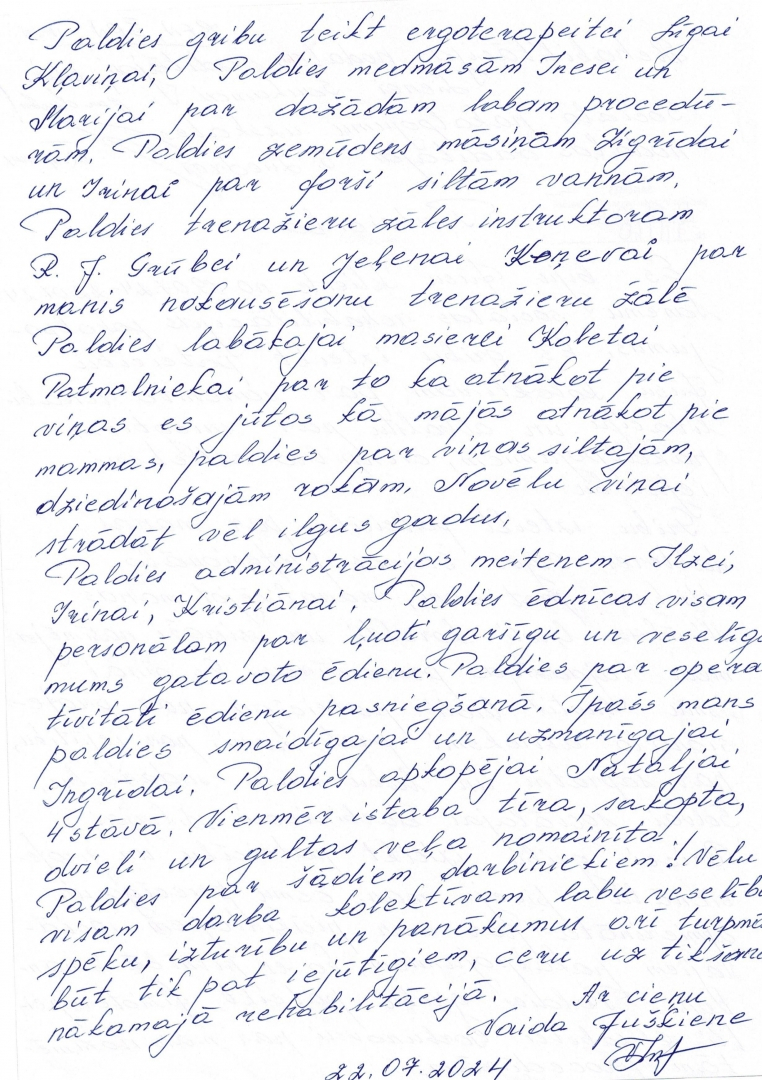 Paldies gribu teikt ergoterapeitei Līgai
Kļaviņai, Paldies medmāsām Inesei un
Marijai par dažādām labam procedū-
rām. Paldies zemūdens māsiņām Zigrīdai
un Irinai par forši siltām vannām.
Paldies trenažieru zāles instruktoram
R. J. Grūbei un Jeļenai Koņevai par
manis nokausēšanu trenažieru žālē
Paldies labākajai masierei Kobetai
Patmalniekai par to ka atnākot pie
viņas es jūtos kā mājās atnākot pie
mammas, paldies par viņas siltajām,
dziedinošajām rokām. Novēlu viņai
strādāt vēl ilgus gadus.
Paldies administrācijas meitenem - Ilzei,
Irinai, Kristiānai. Paldies ēdnīcas visam
personālam par ļuoti garšīgu un veselīg
mums gatavoto ēdienu. Paldies par opera
tīvitāti ēdienu pasniegšanā. Īpašs mans
paldies smaidīgajai un uzmanīgajai
Ingrīdai. Paldies apkopējai Nataljai
4 stāvā. Vienmēr istaba tīra, sakopta,
dvieli un gultas veļa nomainīta.
Paldies par šādiem darbiniekiem! Vēlu
visam darba kolektīvam labu veselību
spēku, izturību un panākumus arī turpmā
būt tik pat iejūtīgiem, ceru uz tikšano
nākamajā rehabilitācijā. Ar cieņu
Vaida Juškiene
22.07.2024